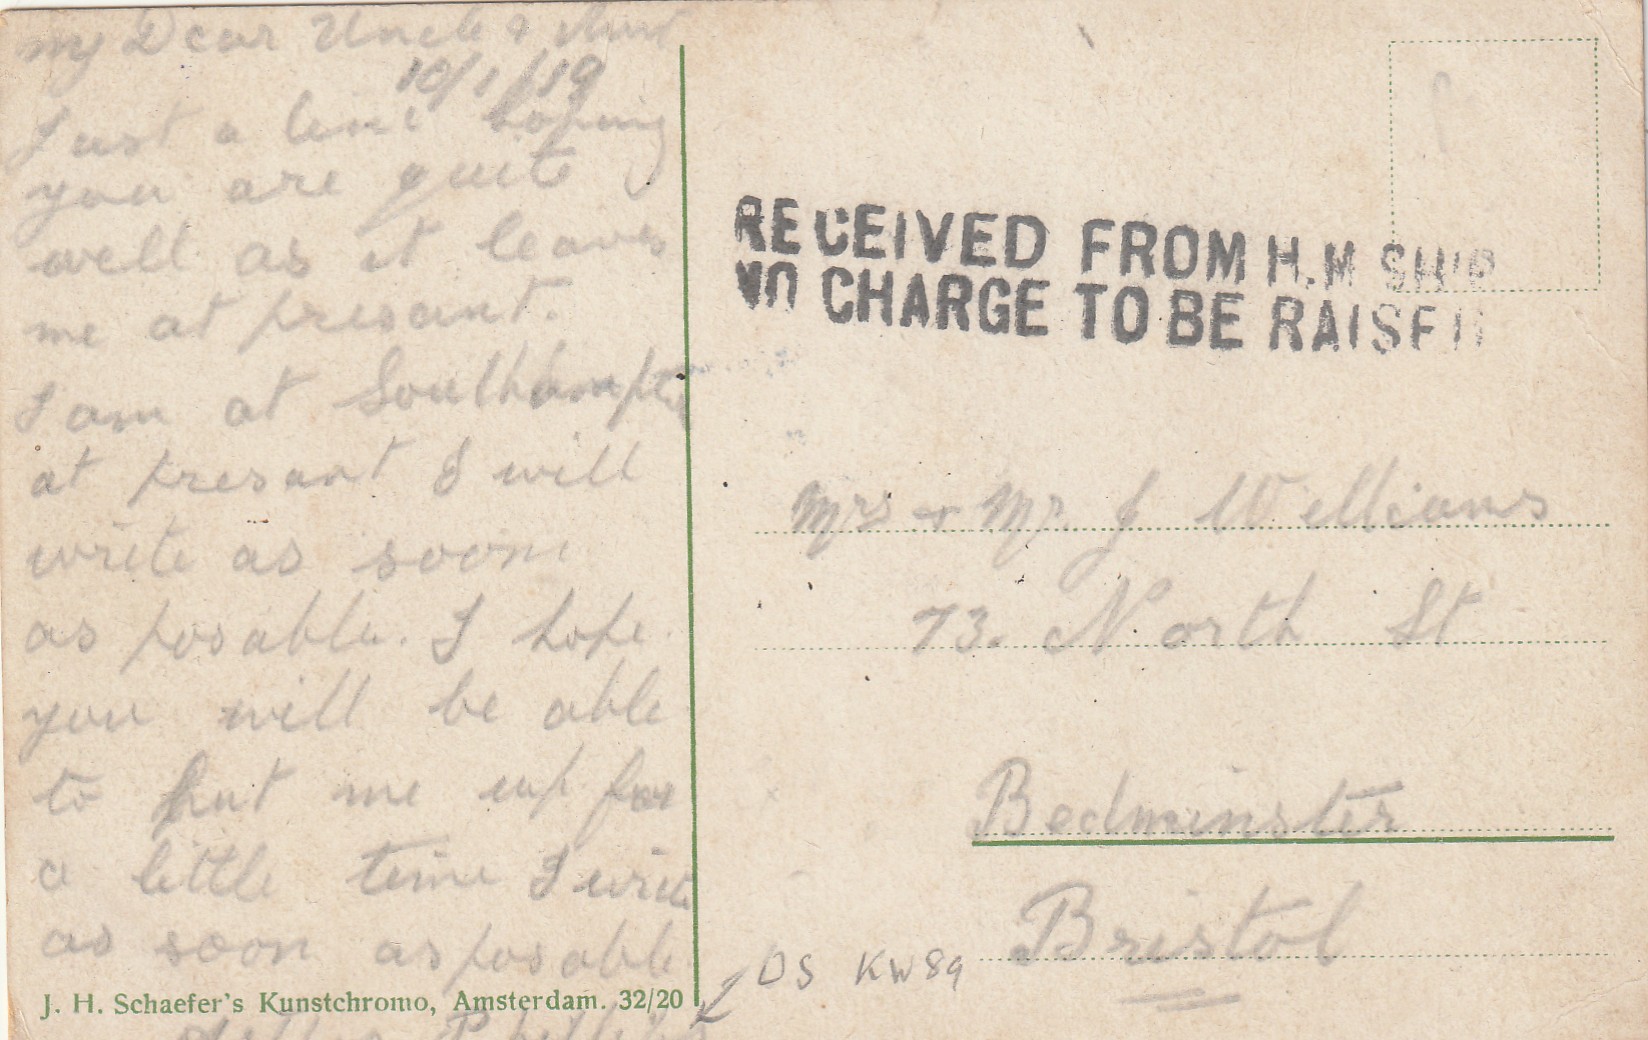 my Dear Uncle & Aunt
10/1/19
Just a line hoping
you are quite
well as it leaves
me at presant.
I am at Southampton
at presant I will
write as soon
as posable. I hope
you will be able
to put me up for
a little time I write
as soon as posable
J. H. Schaefer's Kunstchromo, Amsterdam. 32/20
RECEIVED FROM H.M SHIP
NO CHARGE TO BE RAISED
Mrs & Mr. J Williams
73. North St
Bedminster
Bristol
DS KW89